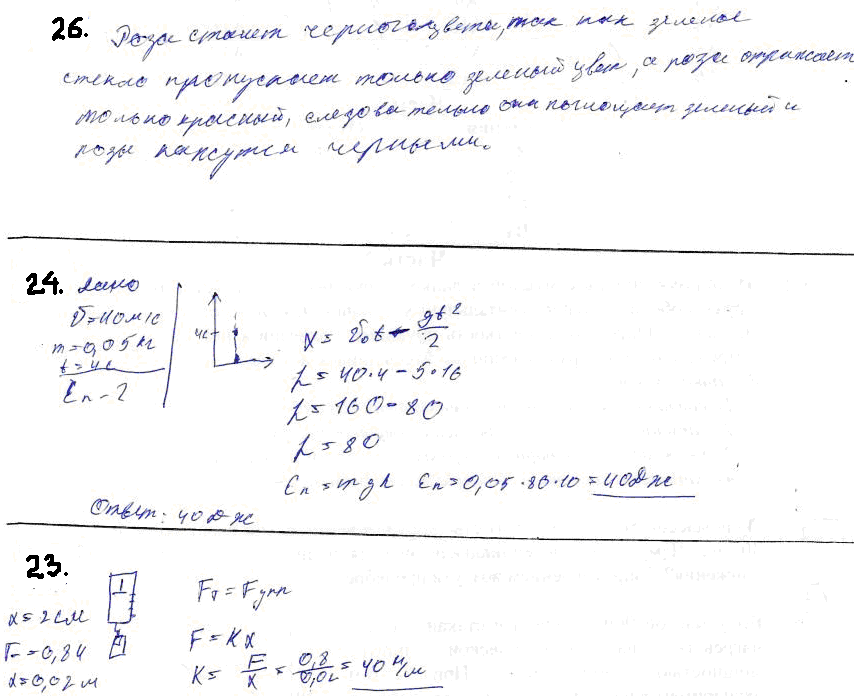 26. Роза станет черного цвета, так как зеленое
стекло пропускает только зеленый цвет, а роза отражает
только красный, следовательно она поглощает зеленый и
розы кажутся черными.
24. Дано
v=40м/с
m=0,05кг
t=4с
Eп-?
4с
x = v₀t - gt²/2
h = 40·4 - 5·16
h = 160 - 80
h = 80
Eп = mgh Eп = 0,05·80·10 = 40Дж
Ответ: 40Дж
23.
x=2см
F=0,8Н
x=0,02м
Fт = Fупр
F = Kx
K = F/x = 0,8/0,02 = 40 Н/м